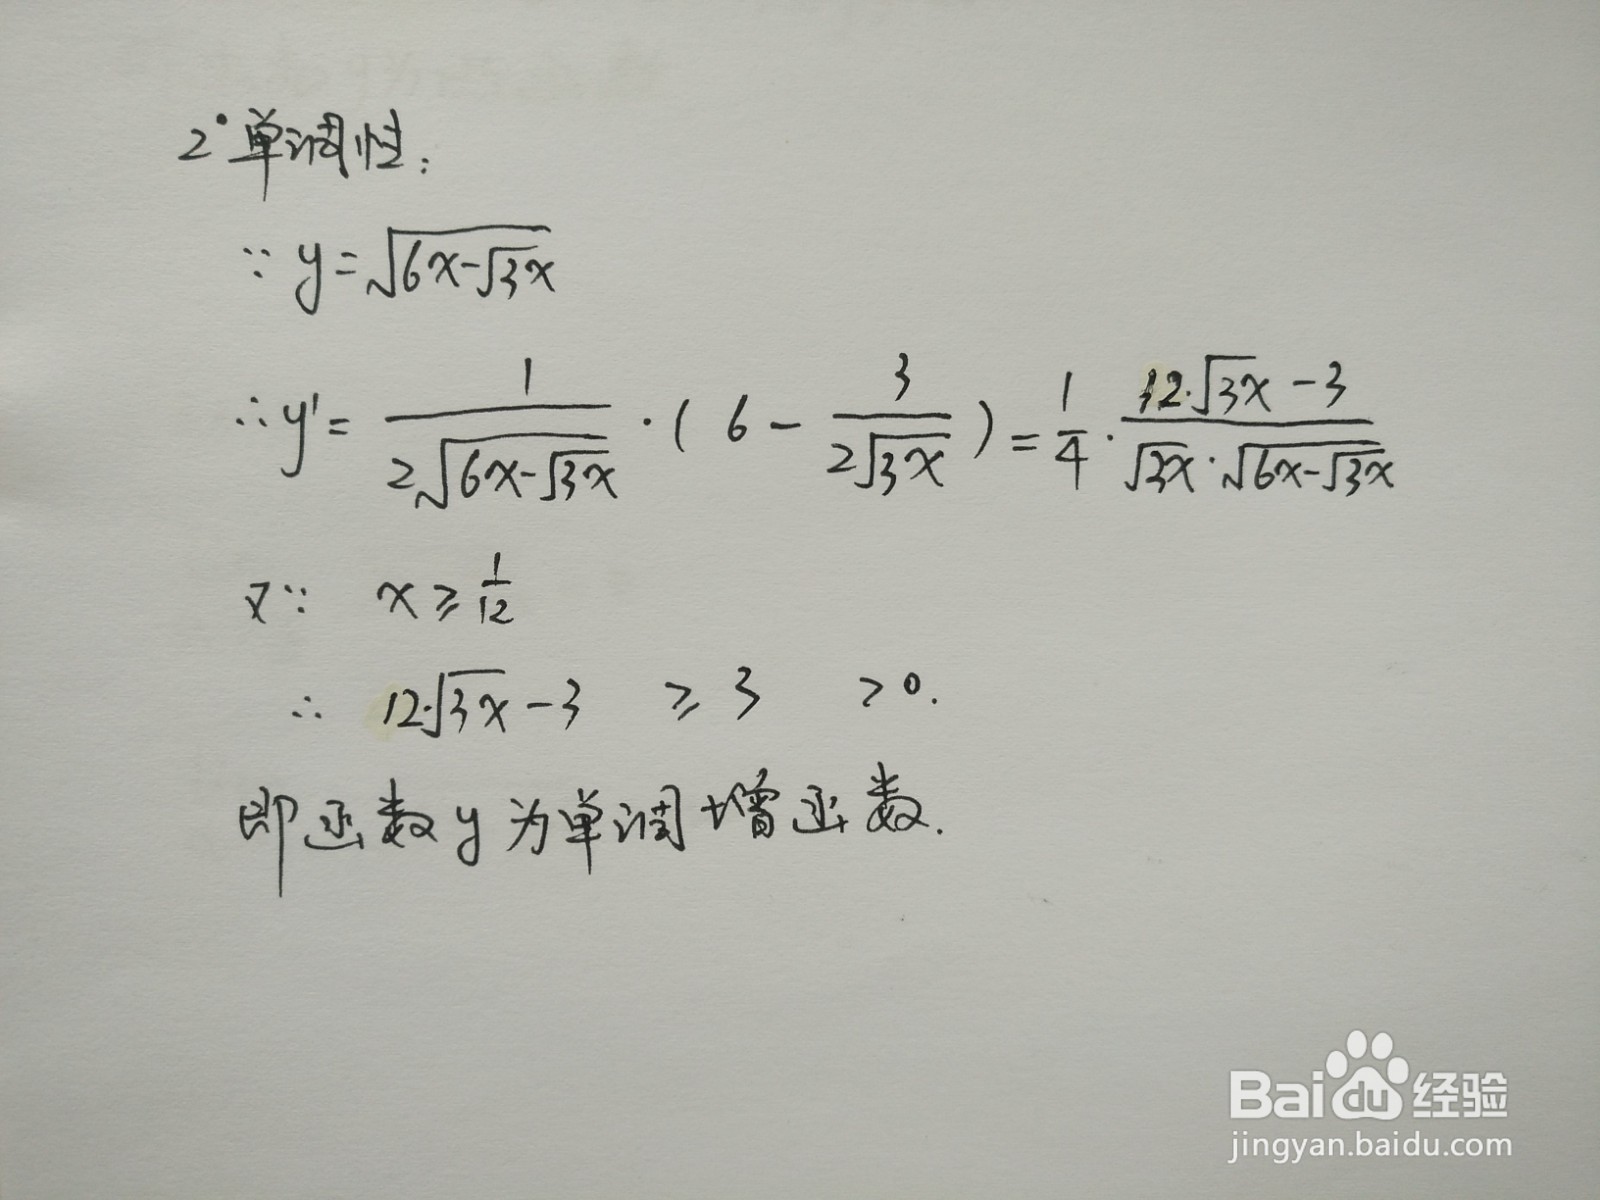 2°单调性:
∵ y=√(6x-√(3x))
∴ y'= 1/(2√(6x-√(3x))) · ( 6 - 3/(2√(3x)) ) = 1/4 · (12·√(3x) - 3)/(√(3x)·√(6x-√(3x)))
又∵ x ≥ 1/12
∴ 12·√(3x) - 3 ≥ 3 > 0.
即函数y为单调增函数.
Baidu经验
jingyan.baidu.com